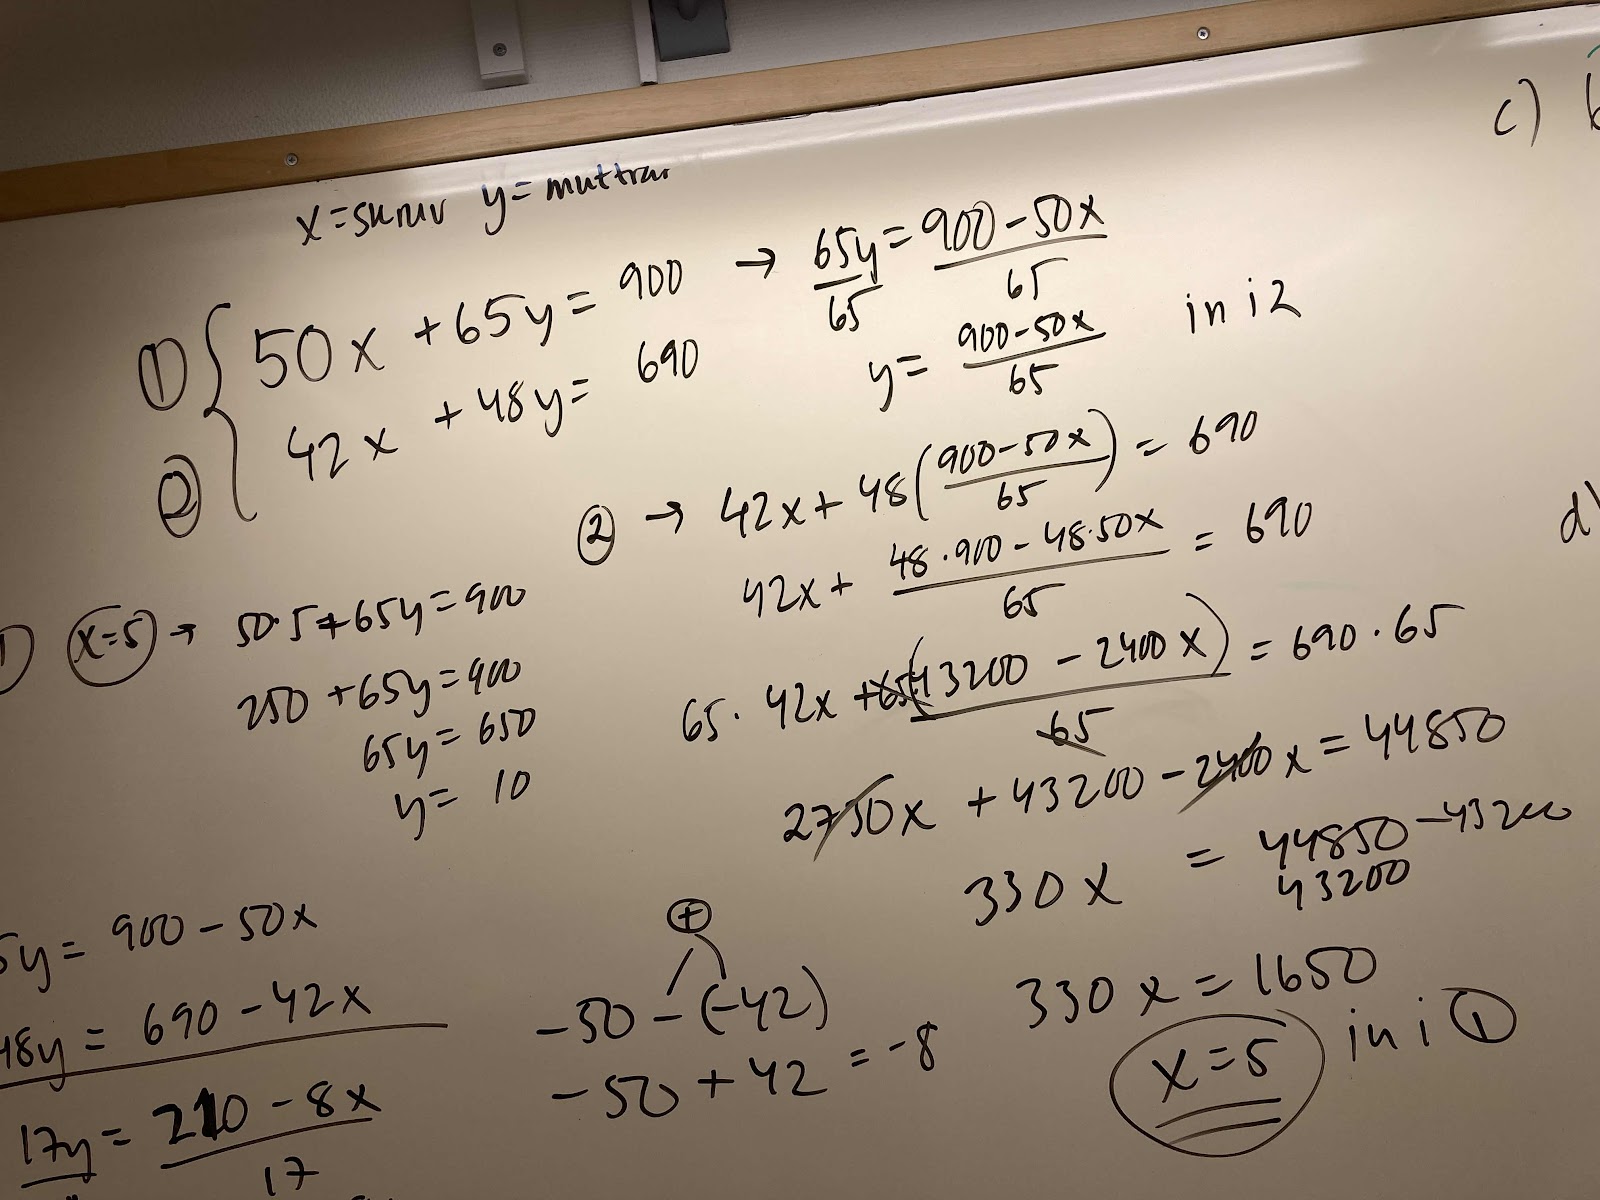 x=skruv y=muttrar
① { 50x +65y= 900 → 65y/65 = (900-50x)/65
② 42x +48y= 690
y= (900-50x)/65 in i 2
② → 42x+48((900-50x)/65) = 690
42x+ (48·900-48·50x)/65 = 690
65· 42x +65·(43200-2400x)/65 = 690·65
2730x +43200-2400x=44850
330x = 44850-43200
43200
330x=1650
x=5 in i ①
x=5 → 50·5+65y=900
250 +65y=900
65y=650
y= 10
5y= 900-50x
48y= 690-42x
17y= (210-8x)/17
+
-50-(-42)
-50+42 =-8
c)
d)